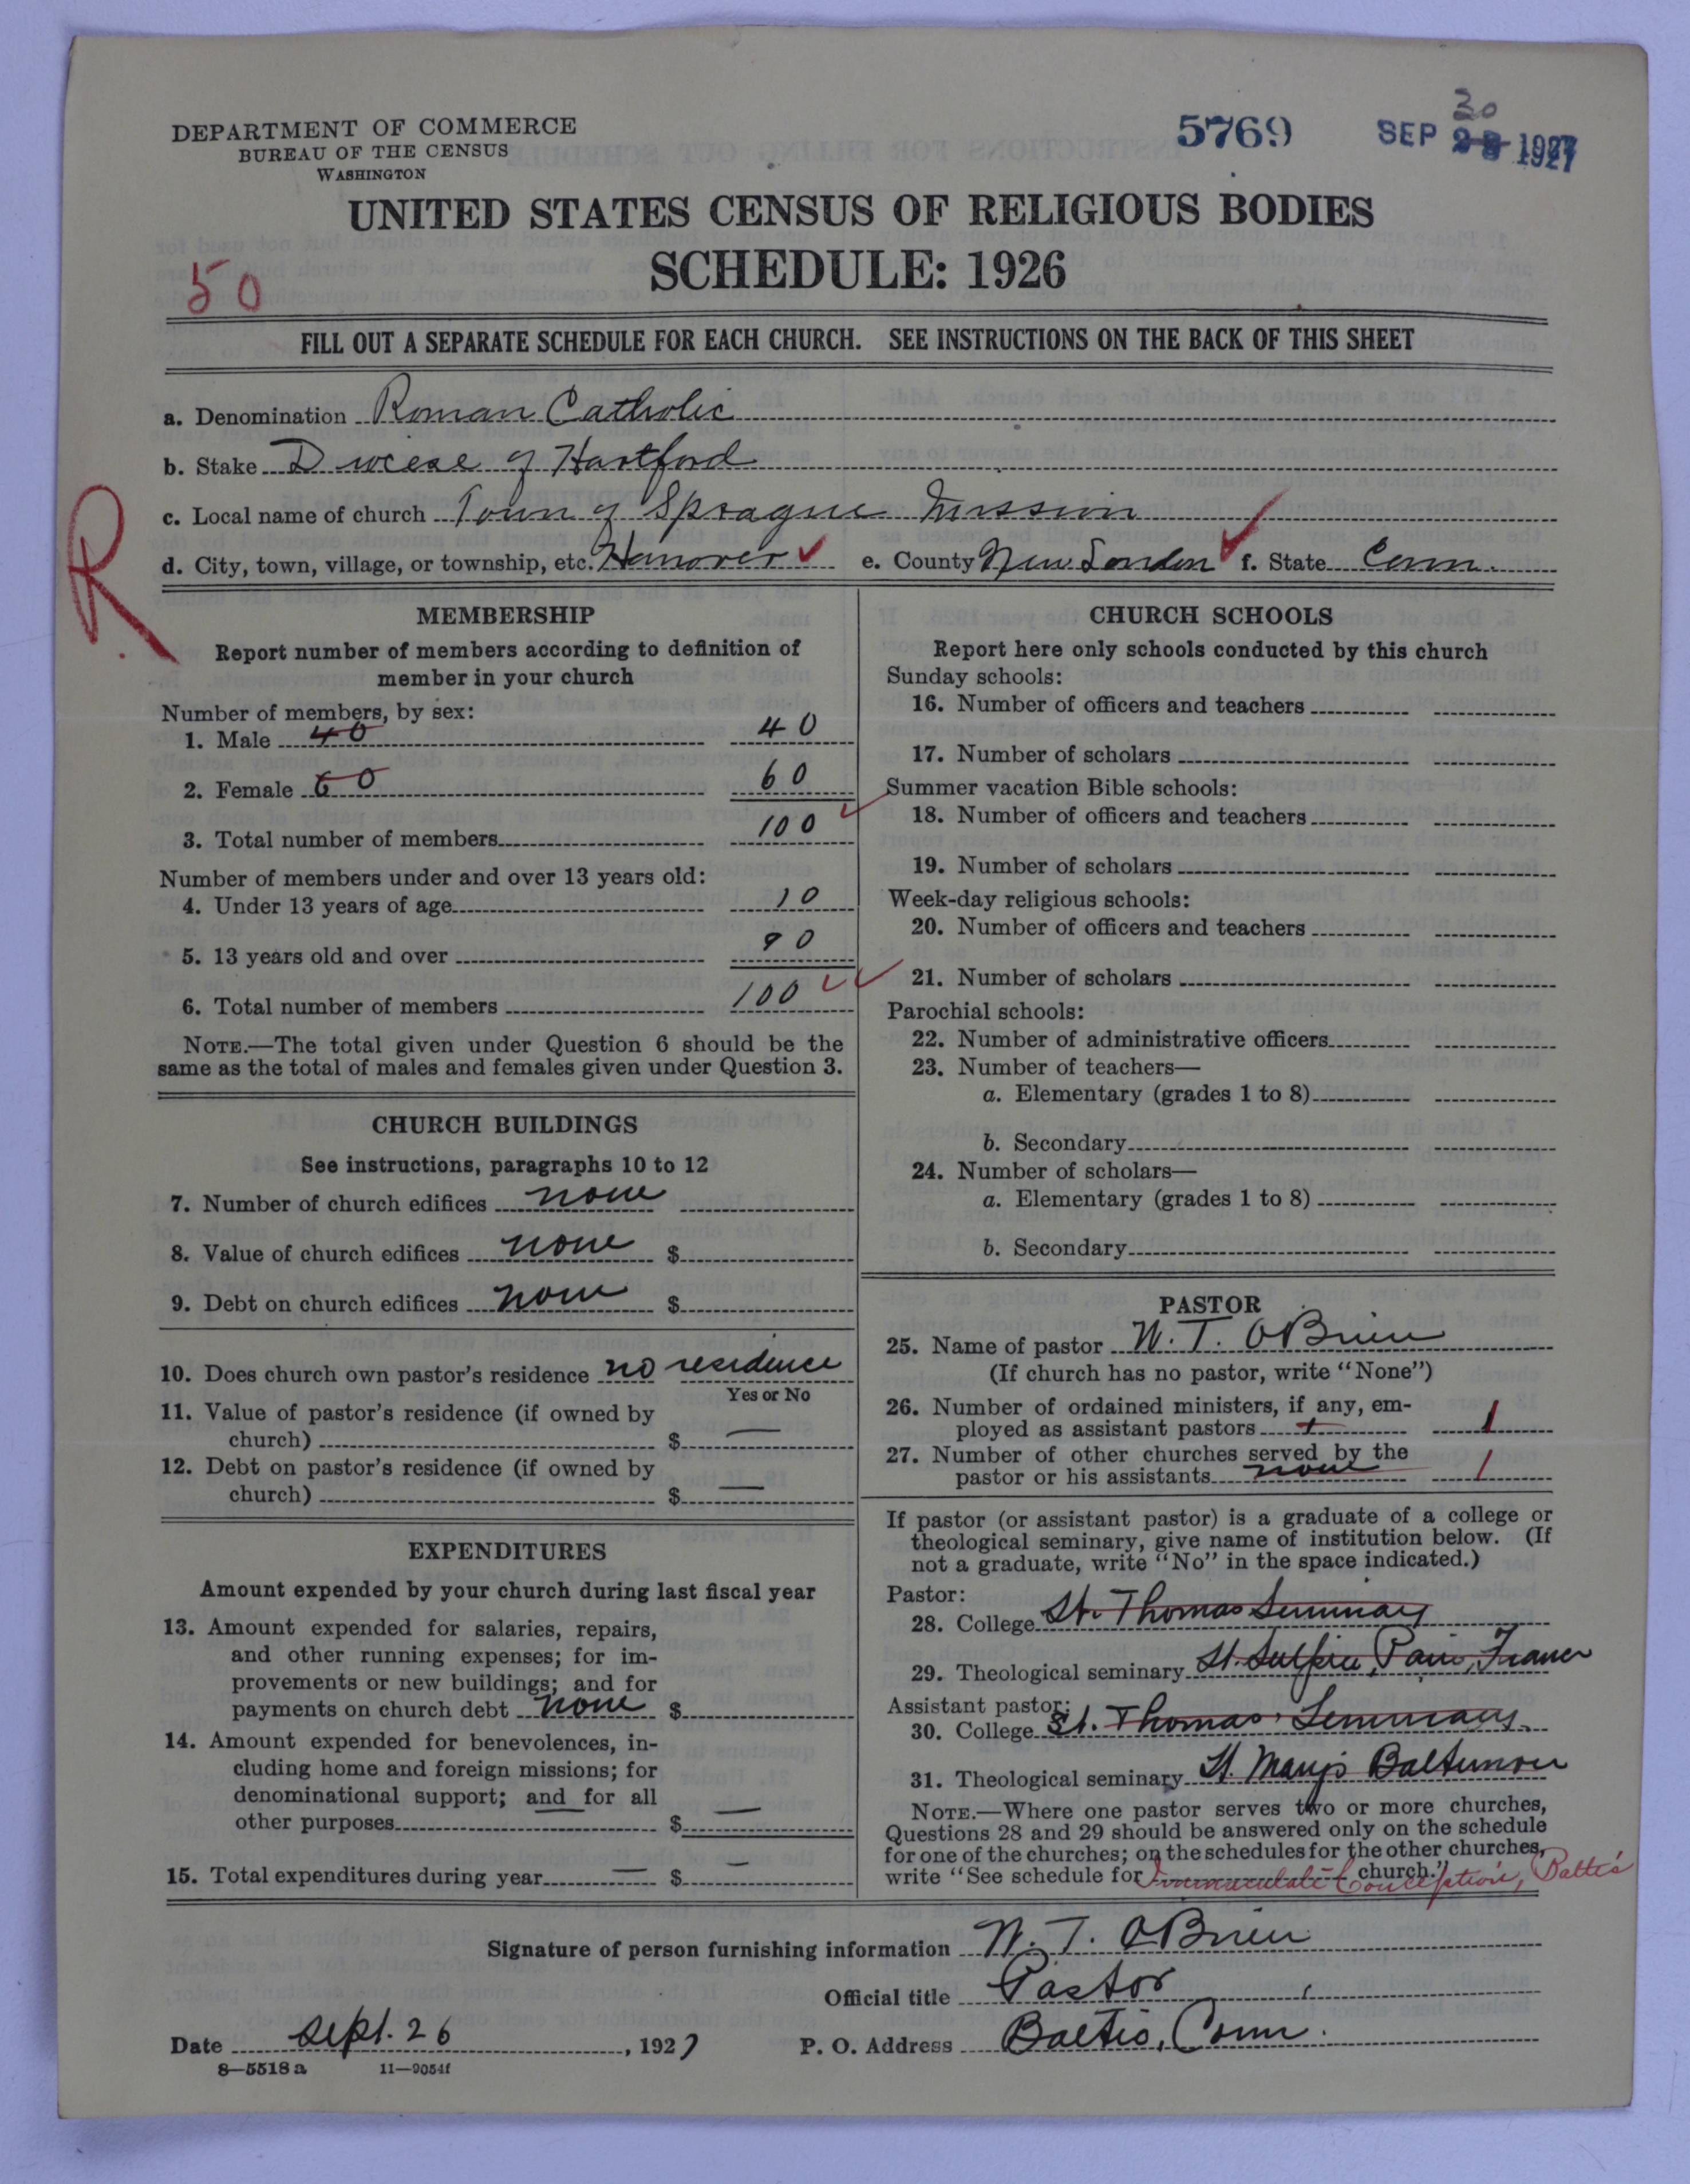 DEPARTMENT OF COMMERCE
BUREAU OF THE CENSUS
WASHINGTON
5769
30
SEP 28 1927
UNITED STATES CENSUS OF RELIGIOUS BODIES
SCHEDULE: 1926
50
FILL OUT A SEPARATE SCHEDULE FOR EACH CHURCH. SEE INSTRUCTIONS ON THE BACK OF THIS SHEET
a. Denomination Roman Catholic
b. Stake Diocese of Hartford
c. Local name of church Town of Sprague Mission
R
d. City, town, village, or township, etc. Hanover e. County New London f. State Conn.
MEMBERSHIP
Report number of members according to definition of
member in your church
Number of members, by sex:
1. Male 40 40
2. Female 60 60
3. Total number of members 100
Number of members under and over 13 years old:
4. Under 13 years of age 10
5. 13 years old and over 90
6. Total number of members 100
NOTE.—The total given under Question 6 should be the
same as the total of males and females given under Question 3.
CHURCH BUILDINGS
See instructions, paragraphs 10 to 12
7. Number of church edifices none
8. Value of church edifices none $
9. Debt on church edifices none $
10. Does church own pastor's residence no residence
Yes or No
11. Value of pastor's residence (if owned by
church) $ —
12. Debt on pastor's residence (if owned by
church) $ —
EXPENDITURES
Amount expended by your church during last fiscal year
13. Amount expended for salaries, repairs,
and other running expenses; for im-
provements or new buildings; and for
payments on church debt none $
14. Amount expended for benevolences, in-
cluding home and foreign missions; for
denominational support; and for all
other purposes — $ —
15. Total expenditures during year — $ —
CHURCH SCHOOLS
Report here only schools conducted by this church
Sunday schools:
16. Number of officers and teachers
17. Number of scholars
Summer vacation Bible schools:
18. Number of officers and teachers
19. Number of scholars
Week-day religious schools:
20. Number of officers and teachers
21. Number of scholars
Parochial schools:
22. Number of administrative officers
23. Number of teachers—
a. Elementary (grades 1 to 8)
b. Secondary
24. Number of scholars—
a. Elementary (grades 1 to 8)
b. Secondary
PASTOR
25. Name of pastor W. T. OBrien
(If church has no pastor, write "None")
26. Number of ordained ministers, if any, em-
ployed as assistant pastors 1 1
27. Number of other churches served by the
pastor or his assistants none 1
If pastor (or assistant pastor) is a graduate of a college or
theological seminary, give name of institution below. (If
not a graduate, write "No" in the space indicated.)
Pastor:
28. College St. Thomas Seminary
29. Theological seminary St. Sulpice, Paris, France
Assistant pastor:
30. College St. Thomas Seminary
31. Theological seminary St. Mary's Baltimore
NOTE.—Where one pastor serves two or more churches,
Questions 28 and 29 should be answered only on the schedule
for one of the churches; on the schedules for the other churches,
write "See schedule for Immaculate Conception, Baltic church."
Signature of person furnishing information W. T. OBrien
Official title Pastor
Date Sept. 26, 1927 P. O. Address Baltic, Conn.
8—5518 a 11—9054f